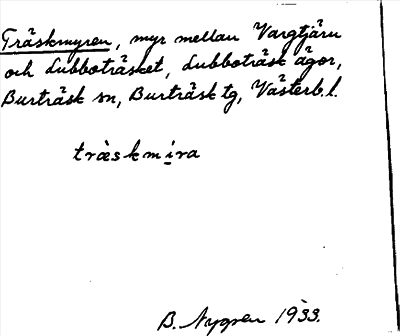 Träskmyren, myr mellan Vargtjärn
och Lubboträsket, Lubboträsk ägor,
Burträsk sn, Burträsk tg, Västerb. l.
træskmira
B. Nygren 1933.